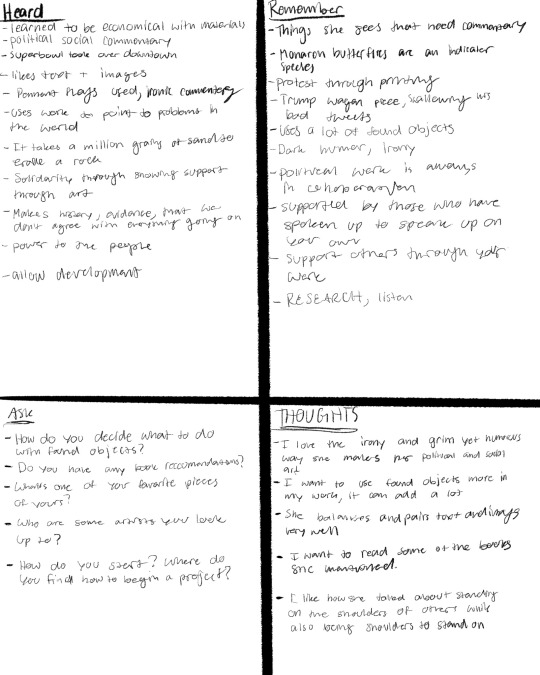 Heard
- learned to be economical with materials
- political social commentary
- superbowl took over downtown
- likes text + images
- Pennant flags used, ironic commentary
- uses work to point to problems in
the world
- It takes a million grains of sand to
erode a rock
- Solidarity through showing support
through art
- Makes history, evidence, that we
don't agree with everything going on
- power to the people
- allow development
Remember
- Things she sees that need commentary
- Monarch butterflies are an indicator
species
- protest through printing
- Trump wagon piece, swallowing his
bad tweets
- Uses a lot of found objects
- Dark humor, irony
- political work is always
in collaboration
- supported by those who have
spoken up to speak up on
your own
- Support others through your
work
- RESEARCH, listen
Ask
- How do you decide what to do
with found objects?
- Do you have any book reccomendations?
- What's one of your favorite pieces
of yours?
- Who are some artists you look
up to?
- How do you start? Where do
you find how to begin a project?
THOUGHTS
- I love the irony and grim yet humorous
way she makes her political and social
art
- I want to use found objects more in
my work, it can add a lot
- She balances and pairs text and imags
very well
- I want to read some of the books
she mentioned.
- I like how she talked about standing
on the shoulders of others while
also being shoulders to stand on